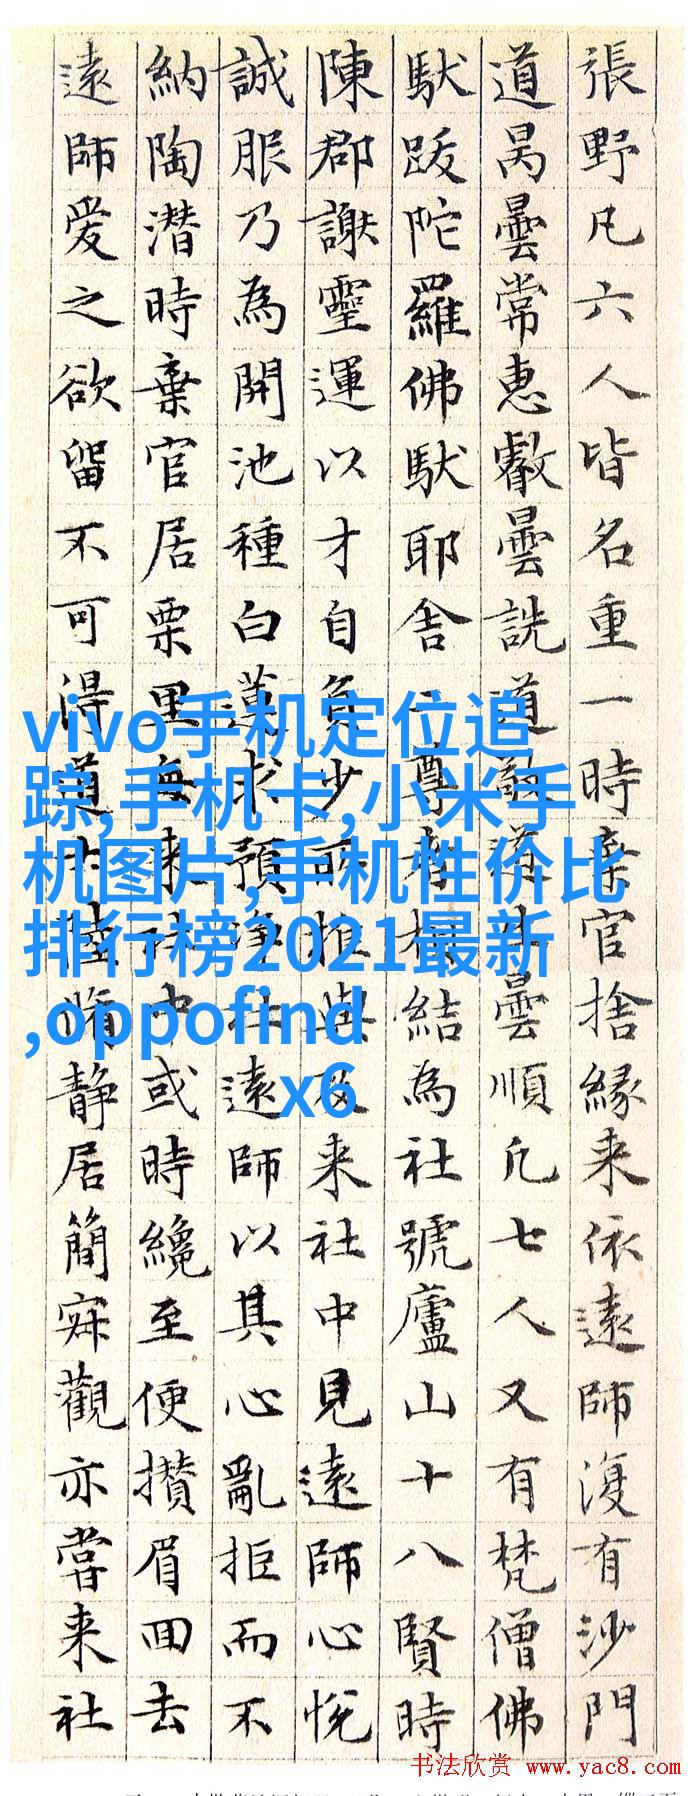 張野凡六人皆名重一時棄官捨緣来依遠師復有沙門
道昺曇常惠叡曇詵道敬道生曇順凡七人又有梵僧佛
馱跋陀羅佛馱耶舍二尊者相結為社號廬山十八賢時
陳郡謝靈運以才自負少所推與及来社中見遠師心悅
誠服乃為開池種白蓮求預淨社遠師以其心亂拒而不
納陶潛時棄官居栗里每来社中或時纔至便攢眉回去
遠師爱之欲留不可得道士陸脩静居簡寂觀亦嘗来社
vivo手机定位追
踪,手机卡,小米手
机图片,手机性价比
排行榜2021最新
,oppofind
x6
书法欣赏 www.yac8.com